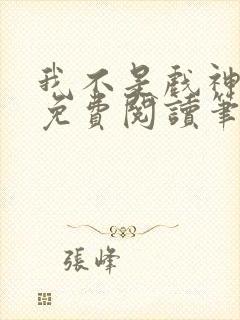 我不是戲神
免費閱讀筆
張峰